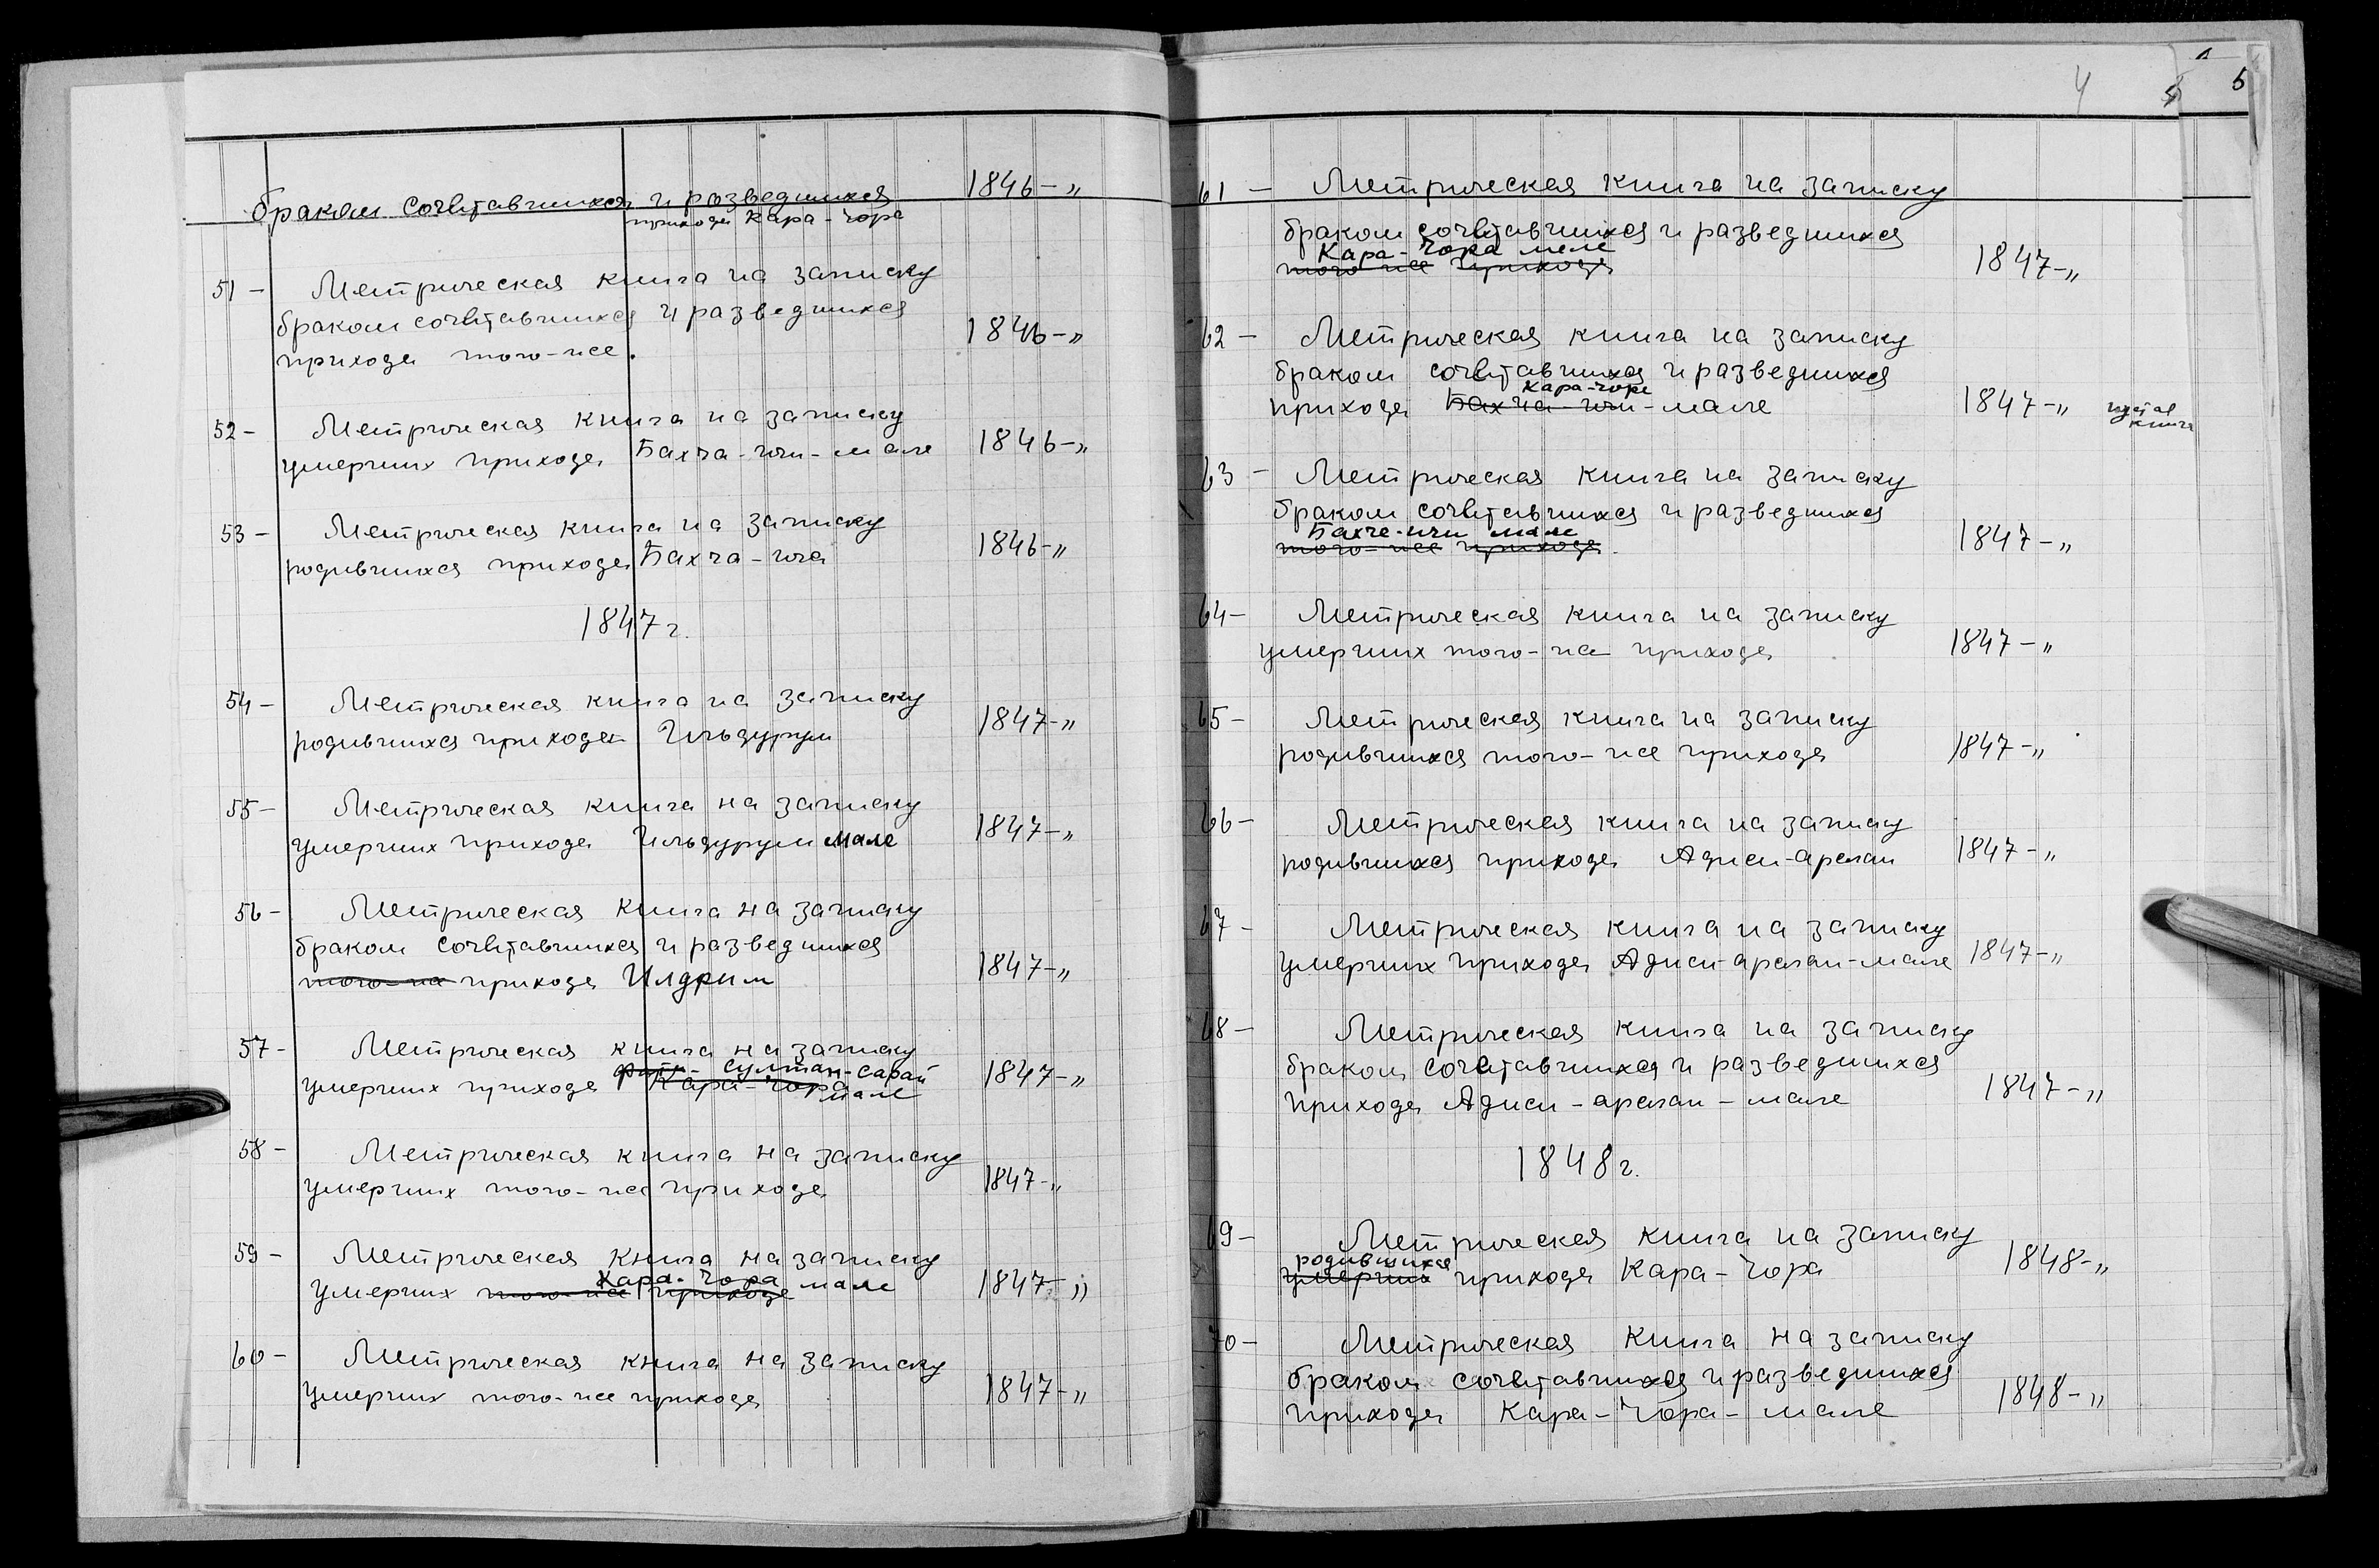 браком сочетавшихся и разведшихся 1846-"
прихода Кара-Чора
51- Метрическая книга на записку
браком сочетавшихся и разведшихся
прихода того-же. 1846-"
52- Метрическая книга на записку
умерших прихода Бахча-ичи-мале 1846-"
53- Метрическая книга на записку
родившихся прихода Бахча-ича 1846-"
1847 г.
54- Метрическая книга на записку
родившихся прихода Ильдурум 1847-"
55- Метрическая книга на записку
умерших прихода Ильдурум мале 1847-"
56- Метрическая книга на записку
браком сочетавшихся и разведшихся
того-же прихода Илдрим 1847-"
57- Метрическая книга на записку
Султан-сарай
умерших прихода Кара-Чора 1847-"
мале
58- Метрическая книга на записку
умерших того-же прихода 1847-"
59- Метрическая книга на записку
Кара-Чора мале
умерших того-же прихода 1847-"
60- Метрическая книга на записку
умерших того-же прихода 1847-"
4 5 5
61- Метрическая книга на записку
браком сочетавшихся и разведшихся
Кара-Чора мале
того же прихода 1847-"
62- Метрическая книга на записку
браком сочетавшихся и разведшихся
Кара-чора
прихода Бахча-ичи-мале 1847-"
книга
63- Метрическая книга на записку
браком сочетавшихся и разведшихся
Бахче-ичи мале
того-же прихода. 1847-"
64- Метрическая книга на записку
умерших того-же прихода 1847-"
65- Метрическая книга на записку
родившихся того-же прихода 1847-"
66- Метрическая книга на записку
родившихся прихода Аджи-арслан 1847-"
67- Метрическая книга на записку
умерших прихода Аджи-арслан-мале 1847-"
68- Метрическая книга на записку
браком сочетавшихся и разведшихся
прихода Аджи-арслан-мале 1847-"
1848 г.
69- Метрическая книга на записку
родившихся
умерших прихода Кара-Чора 1848-"
70- Метрическая книга на записку
браком сочетавшихся и разведшихся
прихода Кара-Чора-мале 1848-"